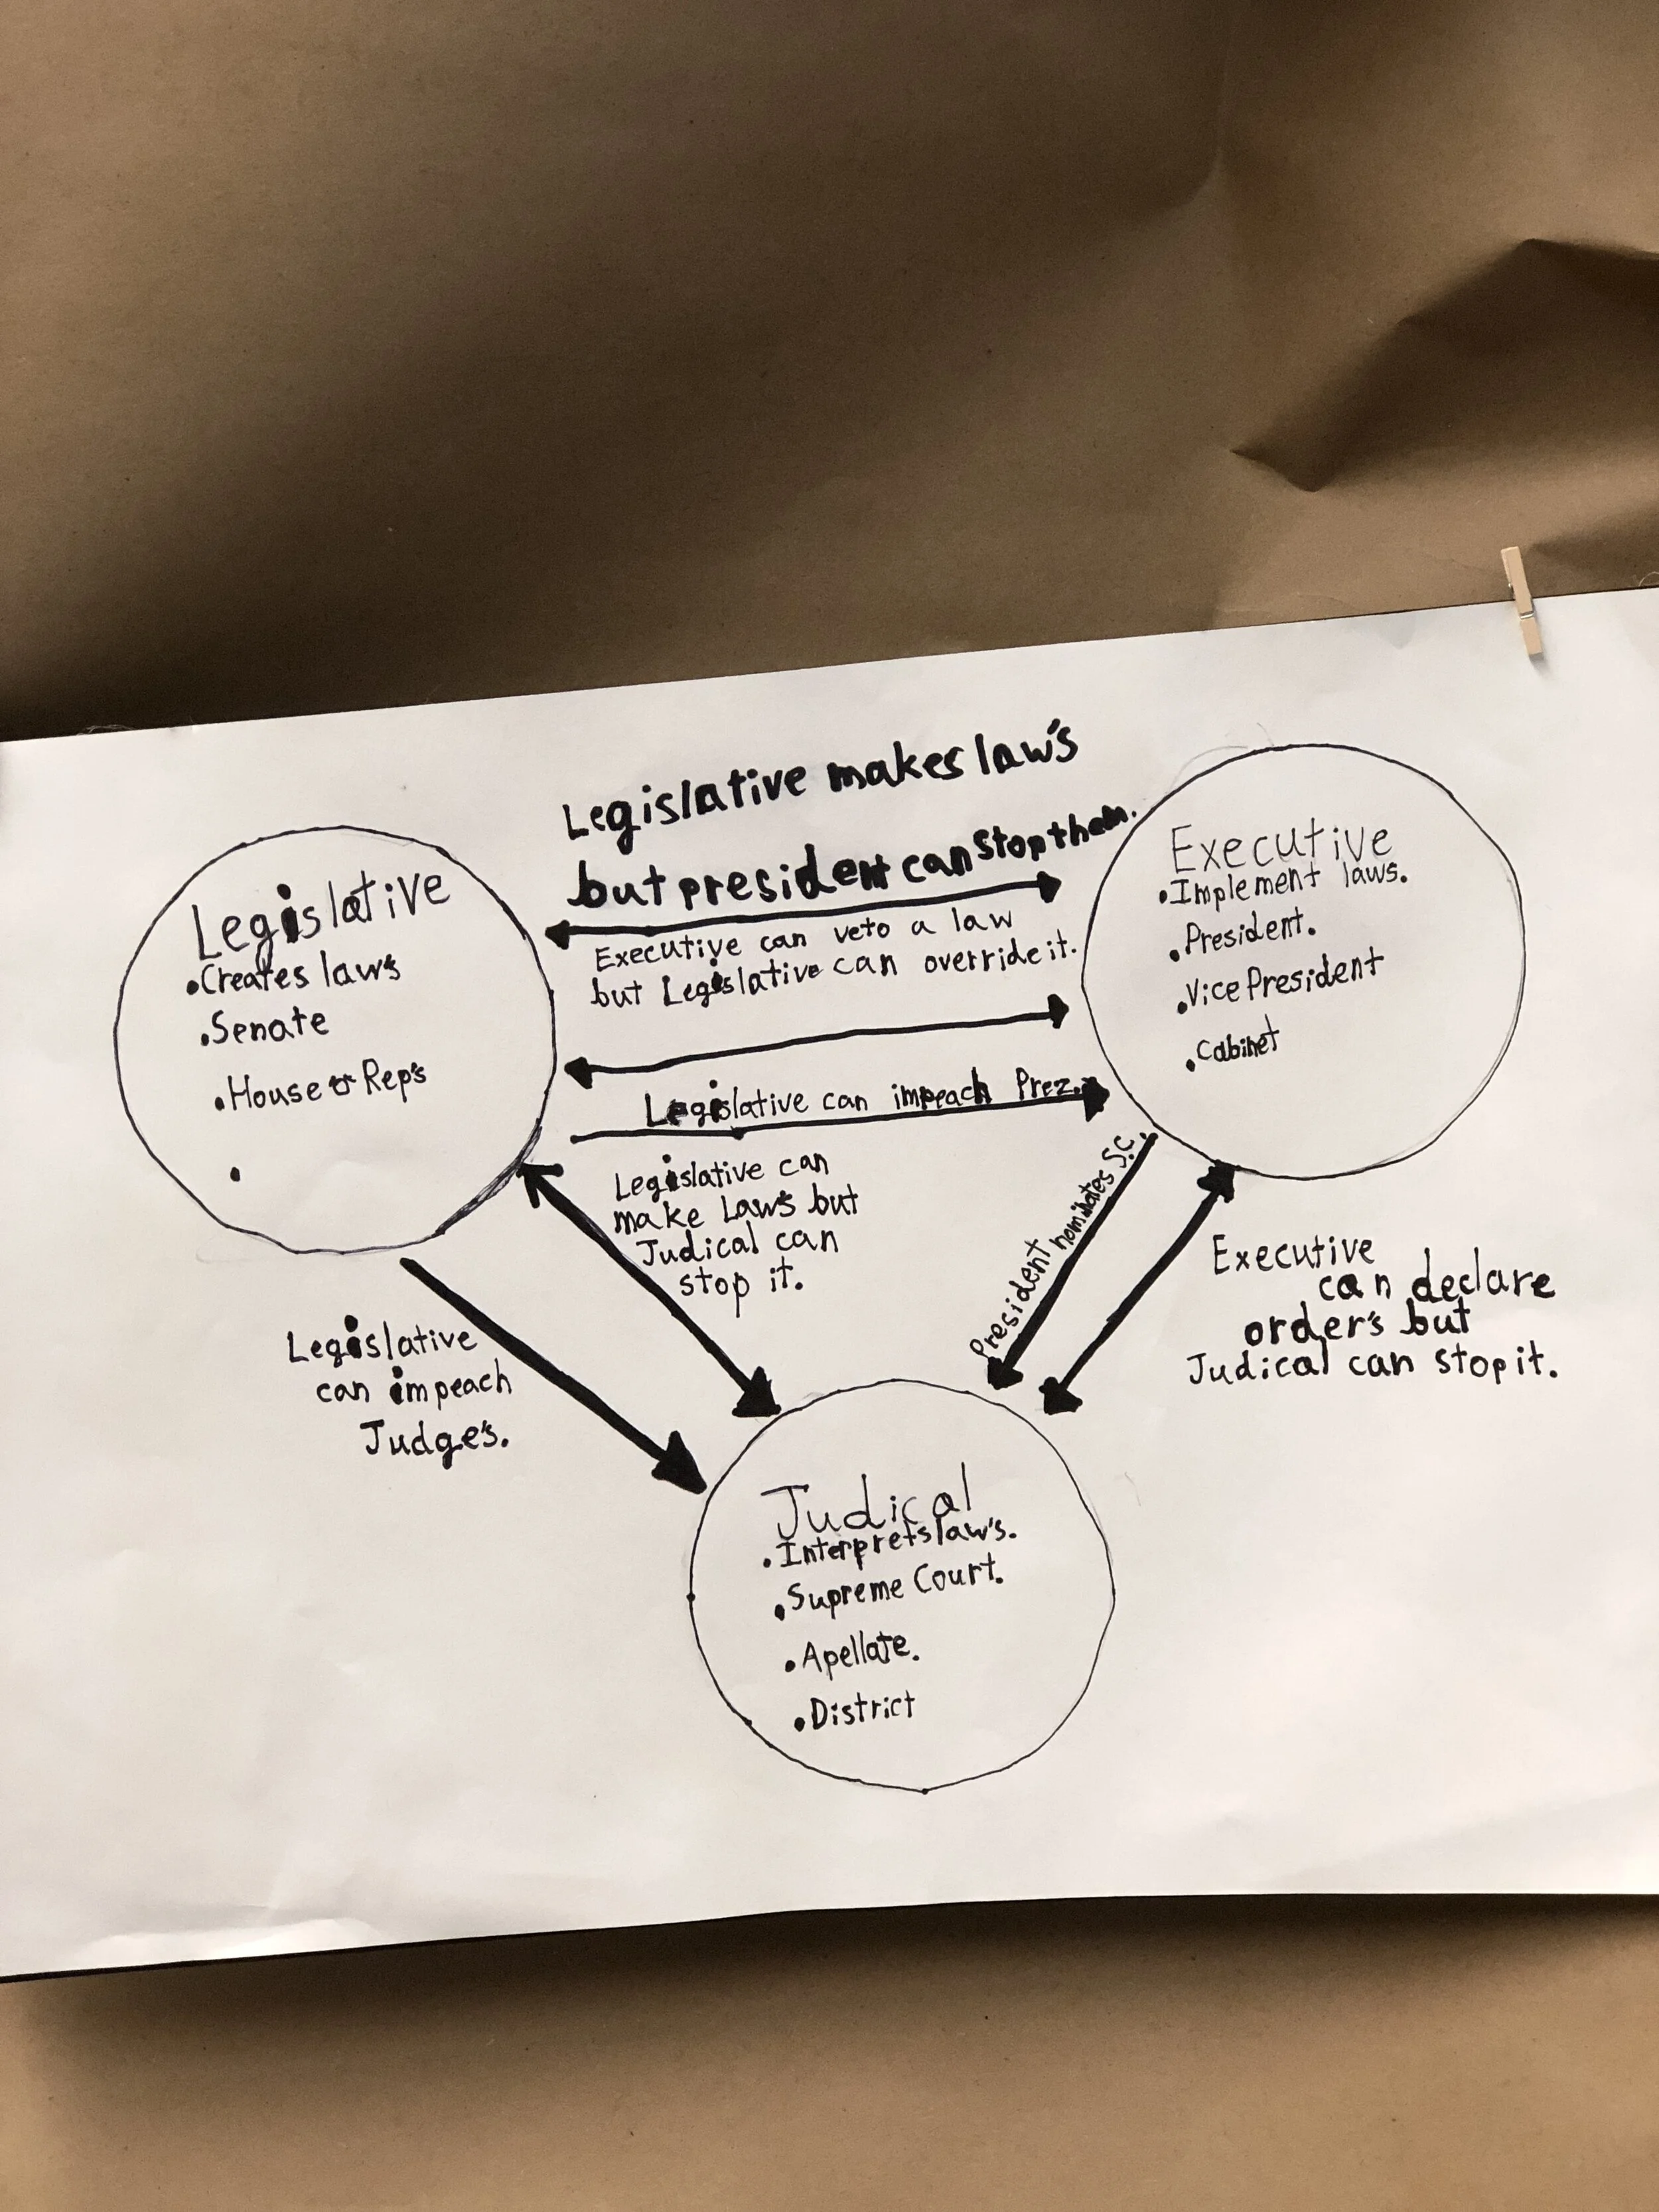 Legislative makes law's
but president can stop them.
Executive can veto a law
but Legislative can override it.
Legislative can impeach Prez.
Legislative
• Creates law's
• Senate
• House of Rep's
•
Executive
• Implement laws.
• President.
• Vice President
• Cabinet
Legislative can
make Law's but
Judical can
stop it.
President nominates S.C.
Executive
can declare
order's but
Judical can stop it.
Legislative
can impeach
Judge's.
Judical
• Interprets law's.
• Supreme Court.
• Apellate.
• District